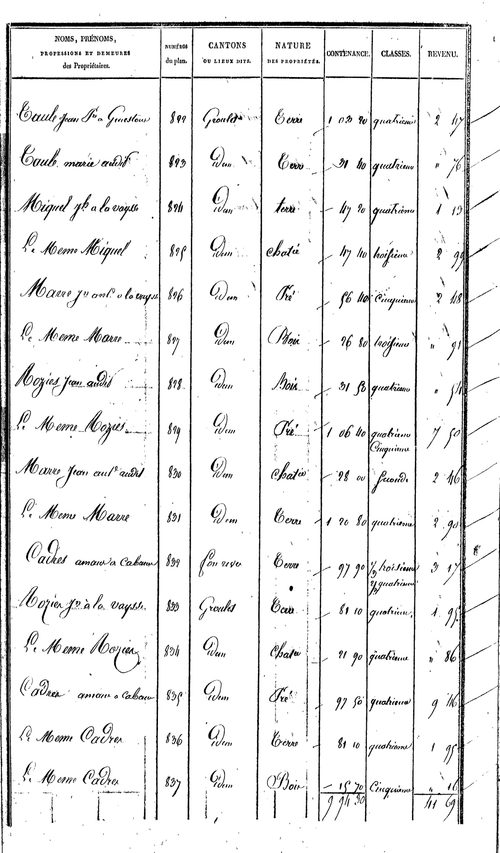 NOMS, PRÉNOMS, PROFESSIONS ET DEMEURES des Propriétaires. NUMÉROS du plan. CANTONS OU LIEUX DITS. NATURE DES PROPRIÉTÉS. CONTENANCE. CLASSES. REVENU.
Taule Jean 822 Groules Terre 1 03 20 quatrieme 2 47
Taule marie audit 823 Idem Terre 31 40 quatrieme " 76
Miquel a la vaysse 824 Idem terre 47 20 quatrieme 1 13
Le Meme Miquel 825 Idem chatée 47 40 troisieme 2 99
Marre a la vaysse 826 Idem Pré 56 40 Cinquieme 2 48
Le Meme Marre 827 Idem Bois 26 80 troisieme " 91
Rozies Jean audit 828 Idem Bois 31 50 quatrieme " 54
Le Meme Rozies 829 Idem Pré 1 06 40 quatrieme 7 50
Cinquieme
Marre Jean ant. audit 830 Idem chatée 28 00 seconde 2 46
Le Meme Marre 831 Idem Terre 1 20 80 quatrieme 2 90
Cadres amans a Cabanes 832 Terre 97 90 1/3 troisieme 3 17
2/3 quatrieme
Rozier Jn à la vaysse 833 Groules Terre 81 10 quatrieme 1 95
Le Meme Rozier 834 Idem Chatée 21 90 quatrieme " 86
Cadres amans a Cabanes 835 Idem Pré 97 50 quatrieme 9 46
Le Meme Cadres 836 Idem Terre 81 10 quatrieme 1 95
Le Meme Cadres 837 Idem Bois 15 70 Cinquieme " 16
9 94 30 41 69